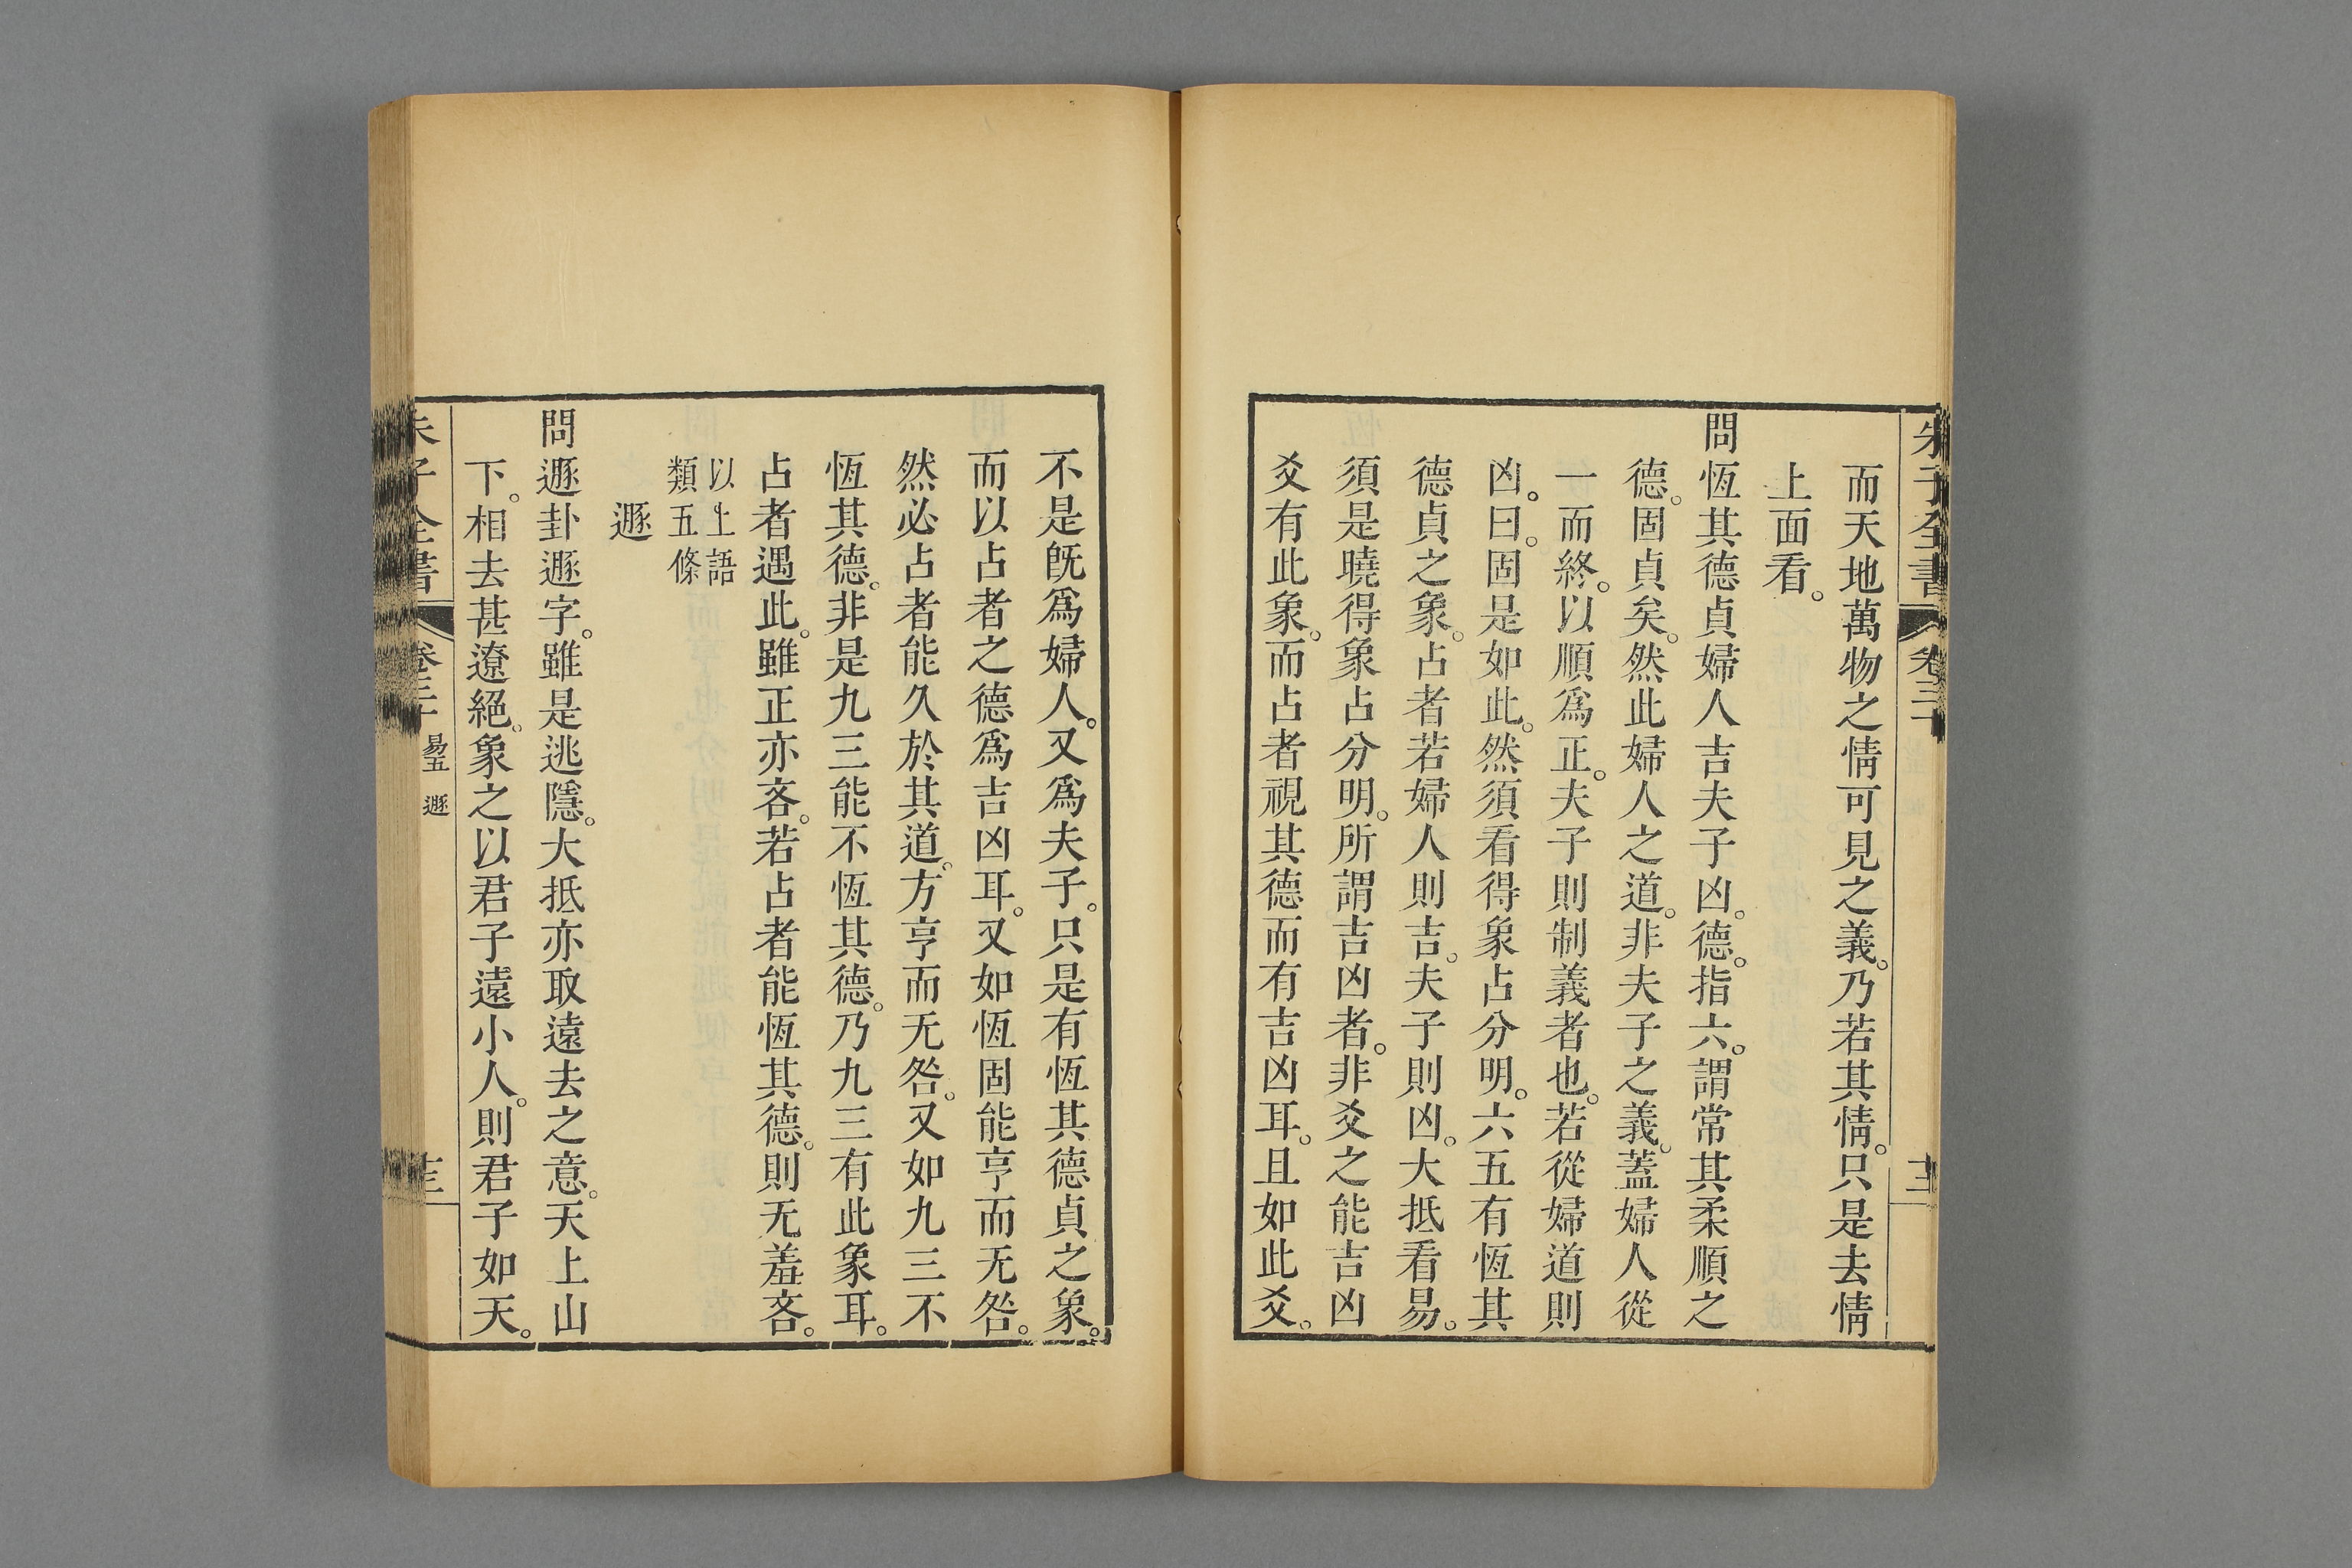 朱子全書 卷三十 十二
而天地萬物之情可見之義。乃若其情。只是去情
上面看。
問恆其德貞婦人吉夫子凶。德。指六。謂常其柔順之
德。固貞矣。然此婦人之道。非夫子之義。蓋婦人從
一而終。以順爲正。夫子則制義者也。若從婦道則
凶。曰。固是如此。然須看得象占分明。六五有恆其
德貞之象。占者若婦人則吉。夫子則凶。大抵看易。
須是曉得象占分明。所謂吉凶者。非爻之能吉凶
爻有此象。而占者視其德而有吉凶耳。且如此爻。
不是旣爲婦人。又爲夫子。只是有恆其德貞之象。
而以占者之德爲吉凶耳。又如恆固能亨而无咎。
然必占者能久於其道。方亨而无咎。又如九三不
恆其德。非是九三能不恆其德。乃九三有此象耳。
占者遇此。雖正亦吝。若占者能恆其德。則无羞吝。
以上語
類五條
遯
問遯卦遯字。雖是逃隱。大抵亦取遠去之意。天上山
下。相去甚遼絕。象之以君子遠小人。則君子如天。
朱子全書 卷三十 易五 遯 十三